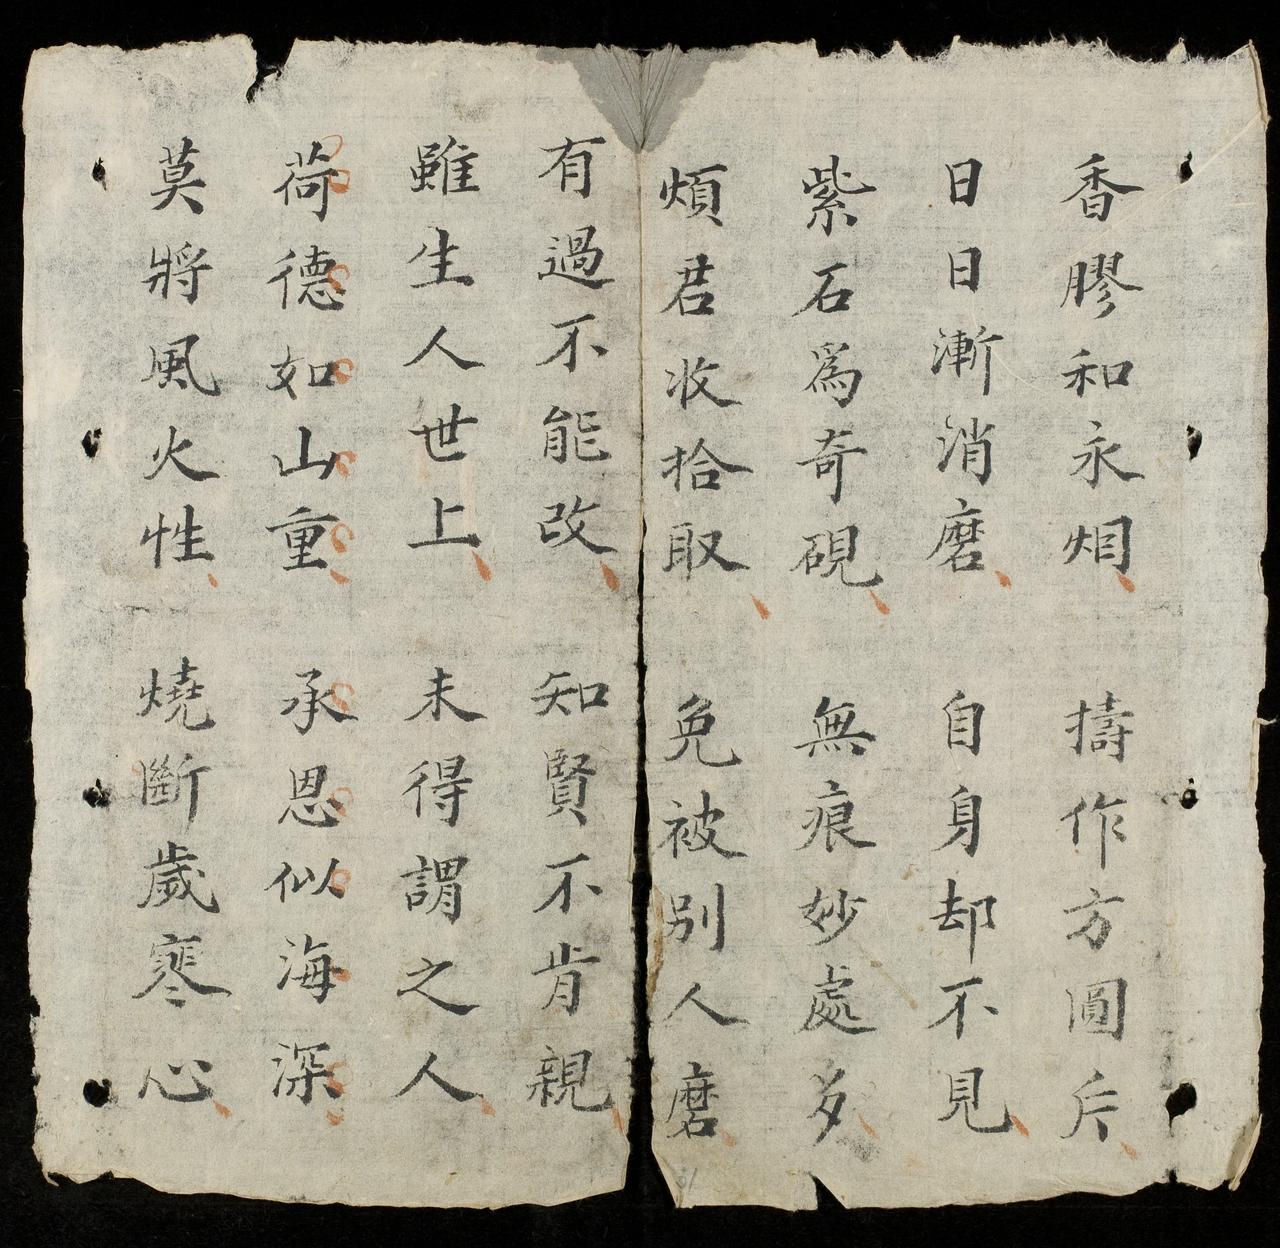 香膠和永烟 擣作方圓斤
日日漸消磨 自身却不見
紫石為奇硯 無痕妙處多
煩君收拾取 免被别人磨
有過不能改 知賢不肯親
雖生人世上 未得謂之人
荷德如山重 承恩似海深
莫將風火性 燒斷歲寒心